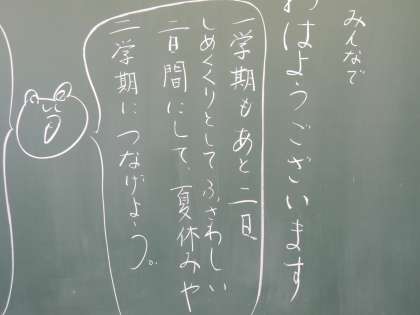 みんなで
おはようございます
一学期もあと二日
しめくくりとしてふさわしい
二日間にして、夏休みや
二学期につなげよう。